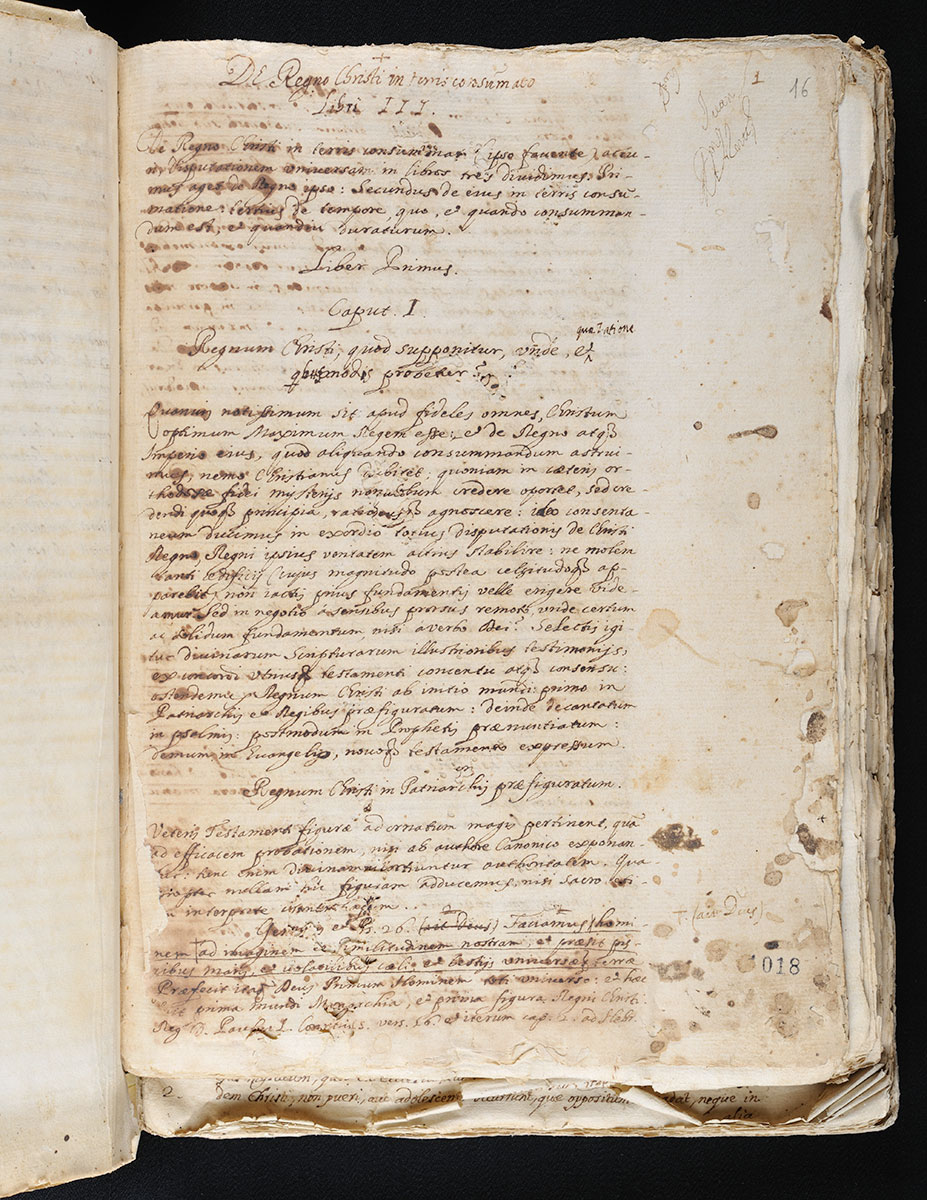 DE Regno Christi in terris consũmato
Libri III.
1
16
De Regno Christi in terris consummando (ipso favente) actu-
ri, disputationem universam in libros tres dividimus. Pri-
mus aget de Regno ipso: Secundus de eius in terris consu-
matione: tertius de tempore, quo, et quando consumman-
dum est, et quandiu duraturum.
Liber Primus.
Caput. I
quæ ratione
Regnum Christi, quod supponitur, vnde, et
modis probetur
Quanvis notissimum sit apud fideles omnes, Christum
optimum Maximum Regem esse; et de Regno atqȝ
Imperio eius, quod aliquando consummandum astrui-
mus, nemo Christianus dubitet: quoniam in cæteris or-
thodoxæ fidei mysterijs non solum credere oportet, sed cre-
dendi quoqȝ principia, rationesqȝ agnoscere: ideo consenta-
neum ducimus in exordio totius disputationis de Christi
Regno, Regni ipsius veritatem altius stabilire: ne molem
tanti ædificij (cujus magnitudo postea celsitudoqȝ ap-
parebit) non iactis prius fundamentis velle erigere vide-
amur. Sed in negotio a sensibus prorsus remoto, vnde certum
ac solidum fundamentum nisi a verbo Dei? Selectis igi
tur divinarum Scripturarum illustrioribus testimonijs,
ex concordi vtriusqȝ testamenti concentu atqȝ consensu:
ostendemus Regnum Christi ab initio mundi primo in
Patriarchis et Regibus præfiguratum: deinde decantatum
in psalmis: postmodum in Prophetis prænuntiatum:
demum in Evangelio, novoqȝ testamento expressum.
Regnum Christi in Patriarchis præfiguratum.
Veteris Testamenti figuræ ad ornatum magis pertinent, quã
ad efficacem probationem, nisi ab authore Canonico exponan-
tur: hinc enim divinam sortiuntur authoritatem. Qua
propter nullam hic figuram adducemus, nisi sacro
interprete
Genes. et Ps. 26. (ait Deus) Faciamus homi-
nem ad imaginem et similitudinem nostram, et præsit pis-
cibus maris, et volatilibus cæli, et bestijs, universæqȝ terræ
Præfecit itaqȝ Deus Primum Hominem toti universo: et hæc
prima mundi Monarchia, et prima figura Regni Christi
D. Paulus I. Corint. 15. vers. 26. et iterum cap. 2. ad Hebr
+ (ait Deus)
1018
2
dem Christi, non pueri, aut adolescen quæ oppositum neque in